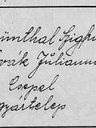 ünthal Sigfr
orák Juliann
Csepel
gyártelep